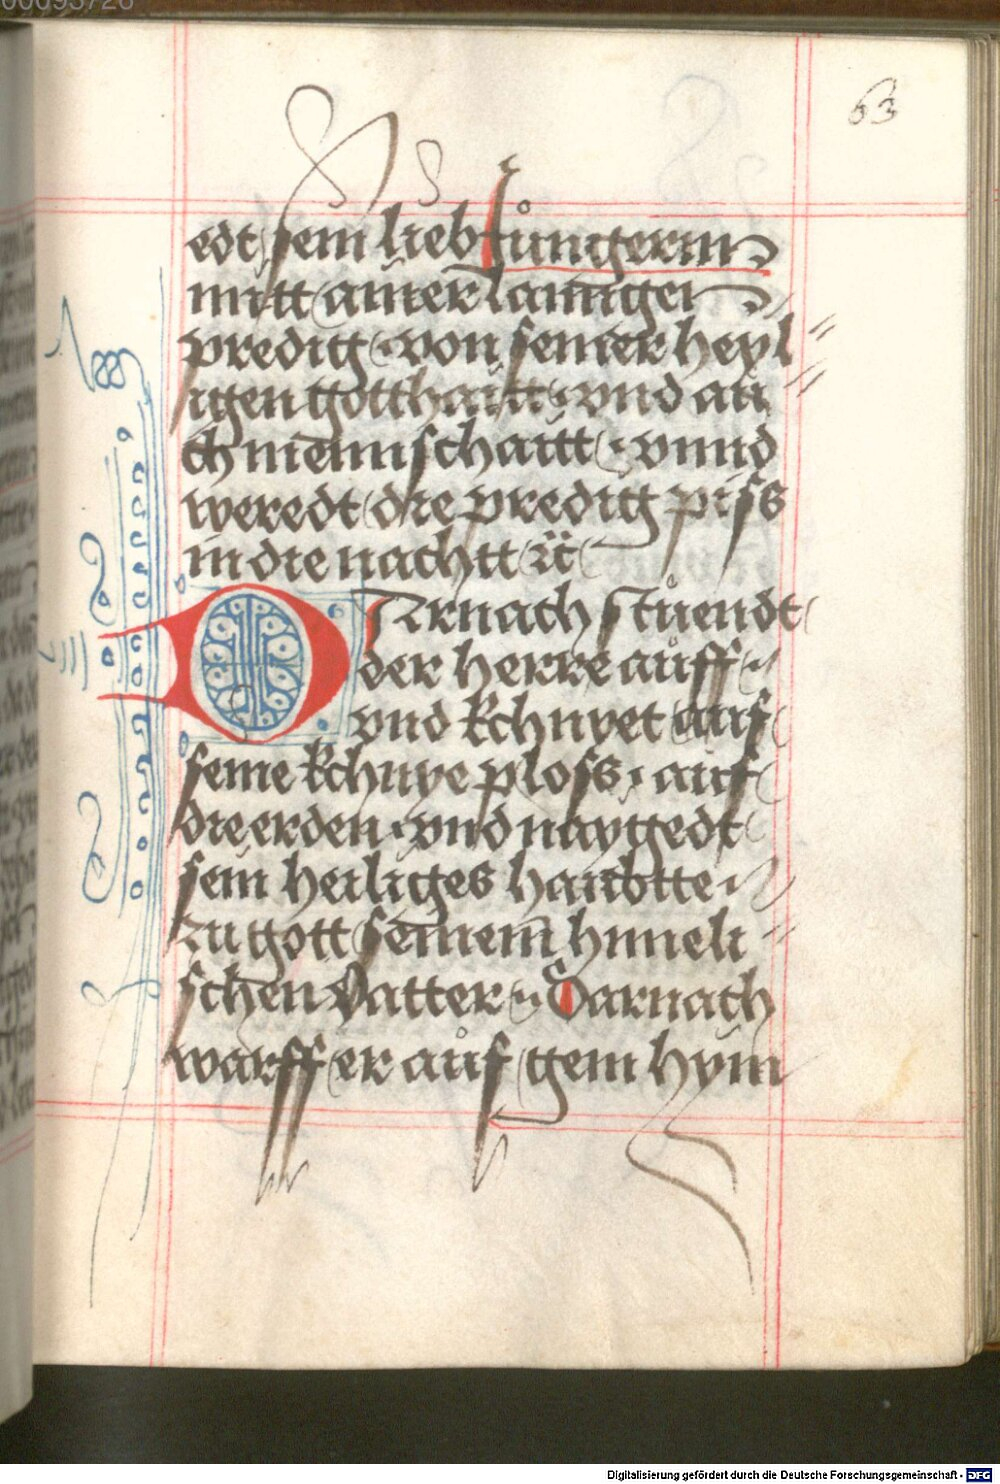 00095726
63
edt sein lieb Jůngerinn
mitt ainer lanngen
predig · von seiner heyl
igen gotthaitt · vnd au
ch mēnnschaitt · vnnd
weredt die predig piss
in die nachtt ꝛc̈
Darnach stůendt
der herre aůff ·
vnd kchnyet auf
seine kchnye ploss · auf
die erden · vnd naygedt
sein heiliges haubtte
zu gott seinem himeli
schen Vatter · Darnach
warff er aůf gein hym
Digitalisierung gefördert durch die Deutsche Forschungsgemeinschaft - DFG